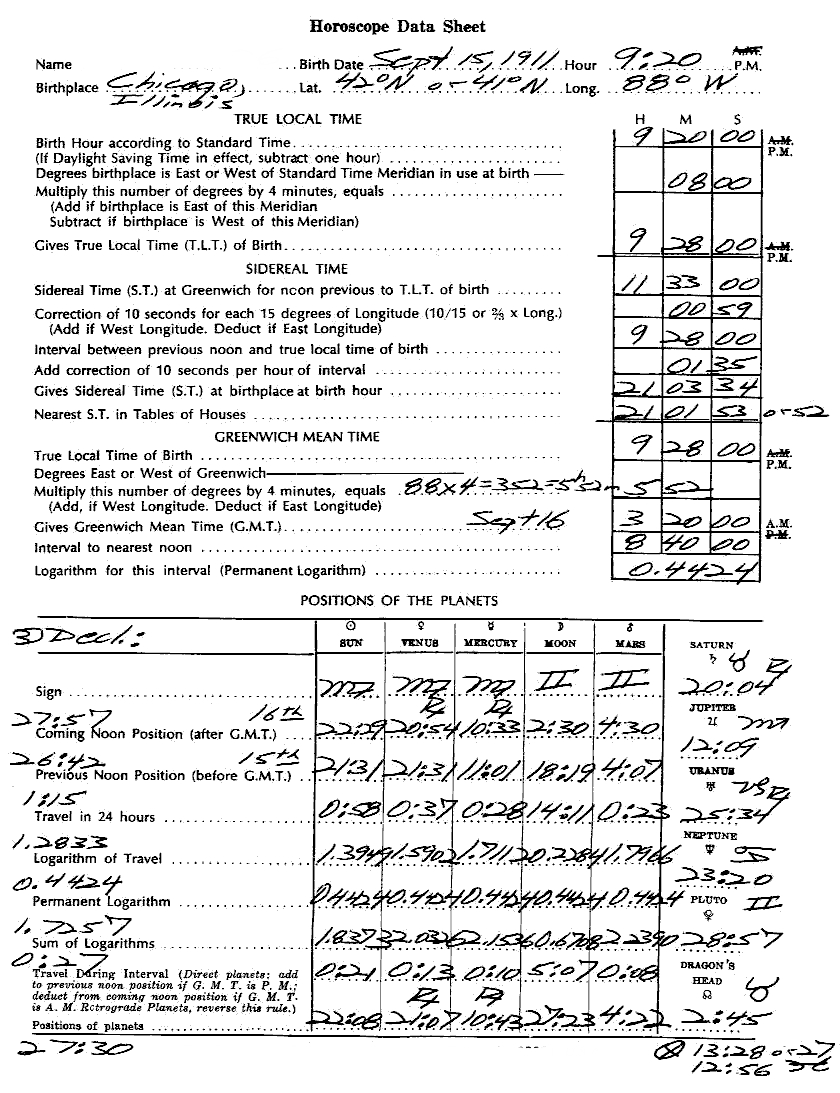 Horoscope Data Sheet
Name ... Birth Date Sept 15, 1911 Hour 9:20 A.M. P.M.
Birthplace Chicago, Illinois Lat. 42°N or 41°N Long. 88° W
TRUE LOCAL TIME H M S
Birth Hour according to Standard Time 9 20 00 A.M. P.M.
(If Daylight Saving Time in effect, subtract one hour)
Degrees birthplace is East or West of Standard Time Meridian in use at birth
Multiply this number of degrees by 4 minutes, equals 08 00
(Add if birthplace is East of this Meridian
Subtract if birthplace is West of this Meridian)
Gives True Local Time (T.L.T.) of Birth 9 28 00 A.M. P.M.
SIDEREAL TIME
Sidereal Time (S.T.) at Greenwich for noon previous to T.L.T. of birth 11 33 00
Correction of 10 seconds for each 15 degrees of Longitude (10/15 or ⅔ x Long.) 00 59
(Add if West Longitude. Deduct if East Longitude)
Interval between previous noon and true local time of birth 9 28 00
Add correction of 10 seconds per hour of interval 01 35
Gives Sidereal Time (S.T.) at birthplace at birth hour 21 03 34
Nearest S.T. in Tables of Houses 21 01 53 or 52
GREENWICH MEAN TIME
True Local Time of Birth 9 28 00 A.M. P.M.
Degrees East or West of Greenwich
Multiply this number of degrees by 4 minutes, equals 88x4=352=5h52m 5 52
(Add, if West Longitude. Deduct if East Longitude)
Gives Greenwich Mean Time (G.M.T.) Sept 16 3 20 00 A.M. P.M.
Interval to nearest noon 8 40 00
Logarithm for this interval (Permanent Logarithm) 0.4424
POSITIONS OF THE PLANETS
☽ Decl: ☉ SUN ♀ VENUS ☿ MERCURY ☽ MOON ♂ MARS SATURN
♄ ♉ ℞
Sign ♍ ♍ ℞ ♍ ℞ ♊ ♊ 20:04
JUPITER
27:57 16th ♃ ♏
Coming Noon Position (after G.M.T.) 22:29 20:54 10:33 2:30 4:30 12:09
26:42 15th URANUS
Previous Noon Position (before G.M.T.) 21:31 21:31 11:01 18:19 4:07 ♅ ♑ ℞
1:15
Travel in 24 hours 0:58 0:37 0:28 14:11 0:23 25:34
1.2833 NEPTUNE
Logarithm of Travel 1.3949 1.5902 1.7112 0.2284 1.7966 ♆ ♋
0.4424 23:20
Permanent Logarithm 0.4424 0.4424 0.4424 0.4424 0.4424 PLUTO ♊
1.7257
Sum of Logarithms 1.8373 2.0326 2.1536 0.6708 2.2390 28:57
0:27
Travel During Interval (Direct planets: add 0:21 0:13 0:10 5:07 0:08 DRAGON'S
to previous noon position if G. M. T. is P. M.; HEAD
deduct from coming noon position if G. M. T. ℞ ℞ ☊ ♉
is A. M. Retrograde Planets, reverse this rule.)
Positions of planets 22:08 21:07 10:43 27:23 4:22 2:45
27:30 ⊗ 13:28 or 27
12:56